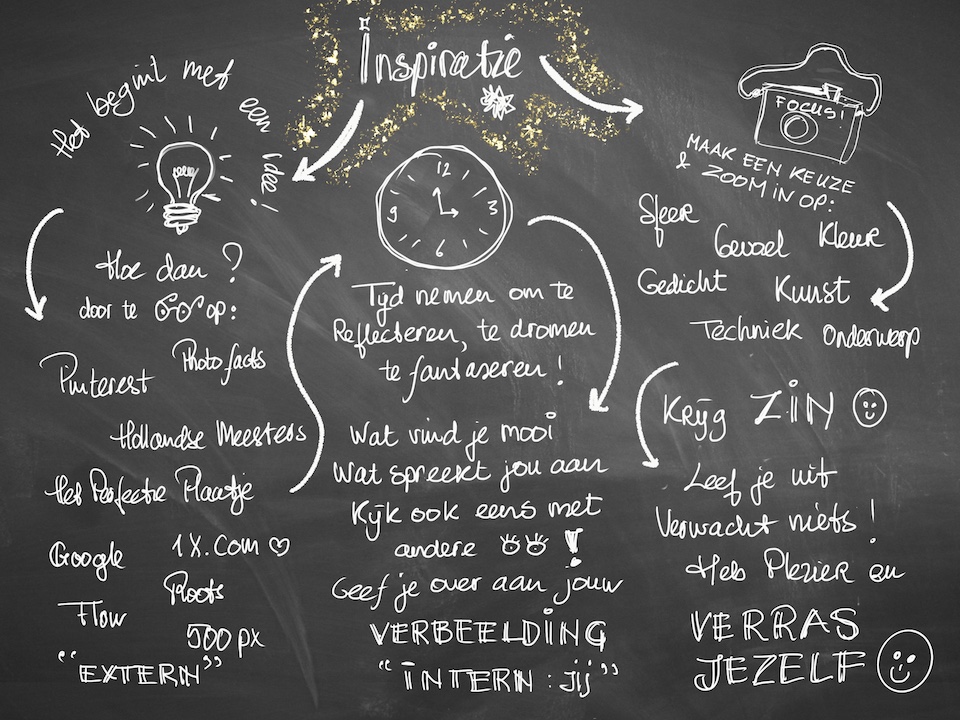 Inspiratie
Het begint met een idee!
Hoe dan?
door te op:
Pinterest
Photofacts
Hollandse Meesters
Het Perfecte Plaatje
Google
1X.com
Roots
Flow
500 px
"EXTERN"
12
3
6
9
Tijd nemen om te
Reflecteren, te dromen
te fantaseren!
Wat vind je mooi
Wat spreekt jou aan
Kijk ook eens met
andere !
Geef je over aan jouw
VERBEELDING
"INTERN: jij"
FOCUS!
MAAK EEN KEUZE
& ZOOM IN OP:
Sfeer
Gevoel
Kleur
Gedicht
Kunst
Techniek
Onderwerp
Krijg ZIN
Leef je uit
Verwacht niets!
Heb Plezier en
VERRAS
JEZELF